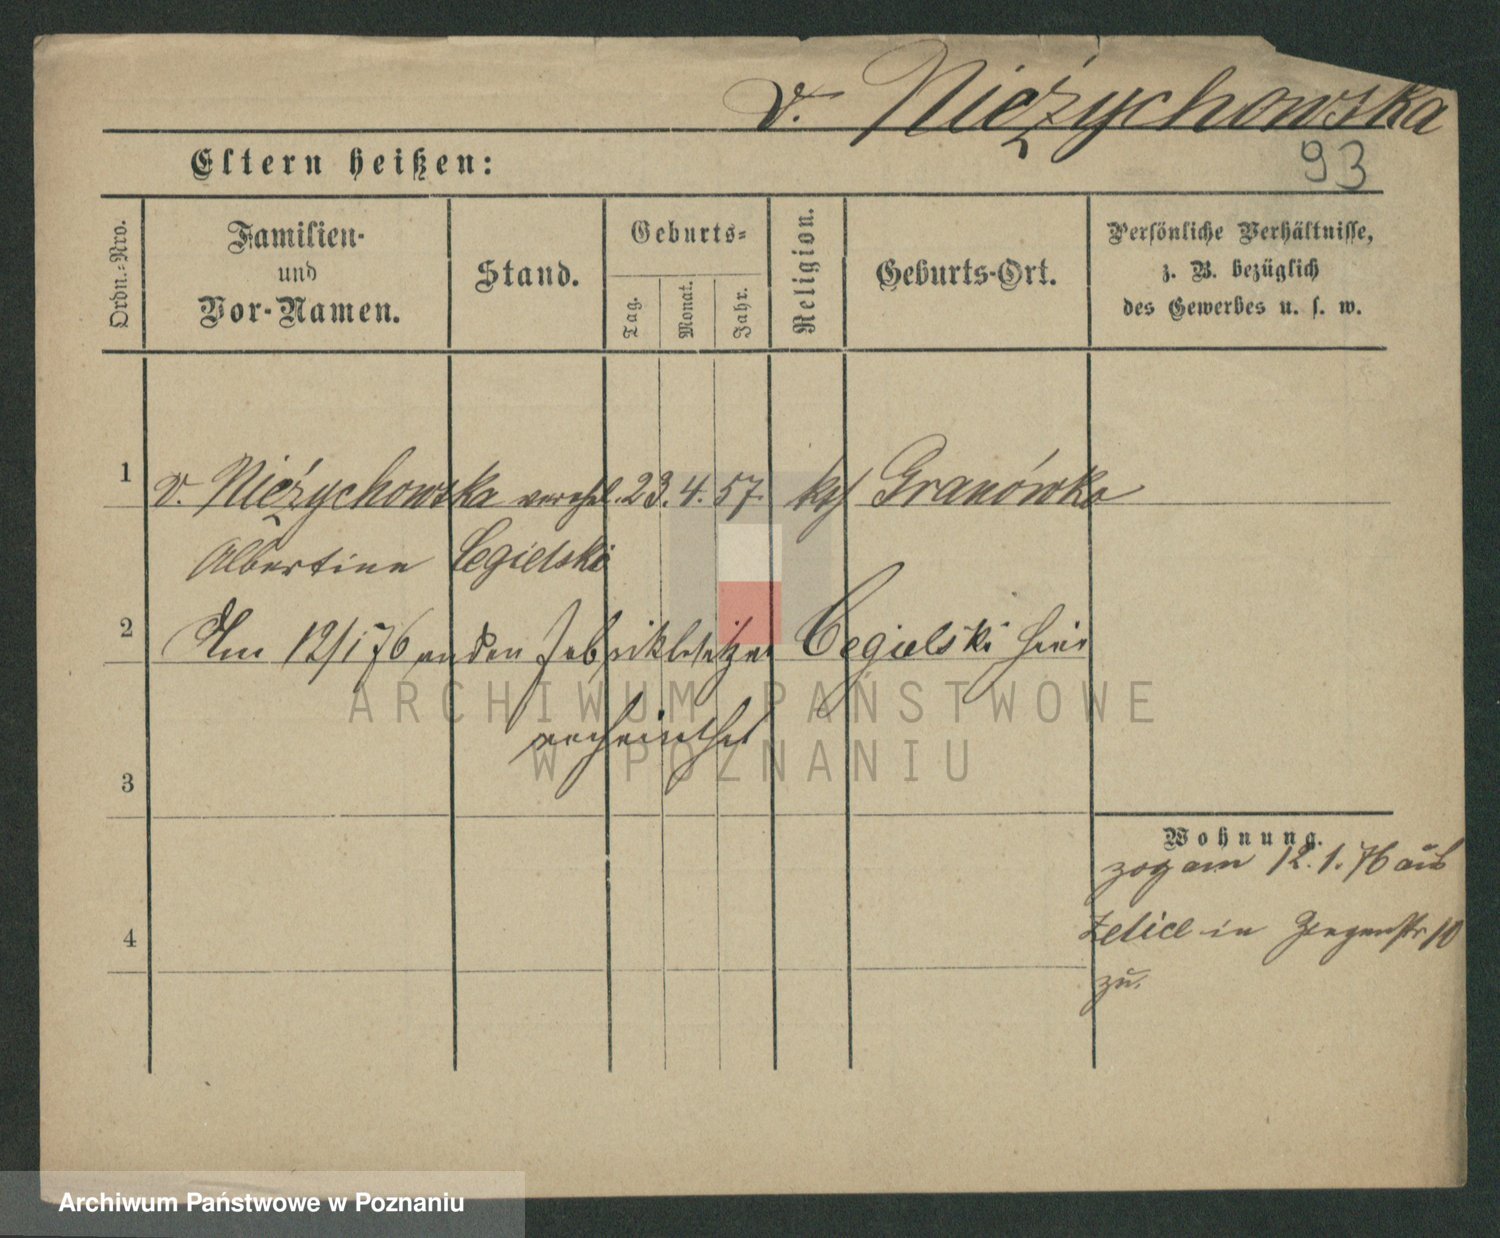 v. Nieżychowska
93
Eltern heißen:
Ordn.-Nro.
Familien- und Vor-Namen.
Stand.
Geburts-
Tag.
Monat.
Jahr.
Religion.
Geburts-Ort.
Persönliche Verhältnisse,
z. B. bezüglich
des Gewerbes u. s. w.
1 v. Nieżychowska verehel. 23. 4. 57 kath Granówko
Albertine Cegielski
2 Am 12/1 76 an den Fabrikbesitzer Cegielski hier
verheirathet
ARCHIWUM PAŃSTWOWE
W POZNANIU
3
Wohnung.
zog am 12. 1. 76 aus
in 10
4
zu.
Archiwum Państwowe w Poznaniu